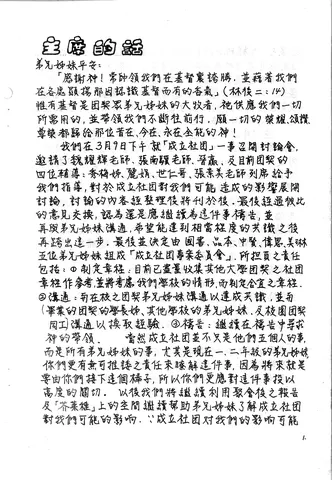 主席的話
弟兄姊妹平安：
「感謝神！常帥領我們在基督裏誇勝，並藉著我們
在各處顯揚那因認識基督而有的香氣」(林後二：14)
惟有基督是團契眾弟兄姊妹的大牧者，祂供應我們一切
所需用的，並帶領我們不斷往前行。願一切的榮耀、頌讚
尊榮都歸給那位昔在、今在、永在全能的神！
我們在3月9日下午就「成立社團」一事召開討論會，
邀請了魏耀輝老師、張南驥老師、晉嬴、及目前團契的
四位輔導：秀梅姊、麗娟、世仁哥、張末美老師列席給予
我們指導，對於成立社團對我們可能造成的影響展開
討論，討論的內容經整理後將刊於後。最後經過彼此
的意見交換，認為還是應繼續為這件事禱告，並
再與弟兄姊妹溝通，希望能達到相當程度的共識之後
再踏出這一步。最後並決定由
五位弟兄姊妹組成「成立社團專案委員會」，所擔負之責任
包括：①制定章程：目前已盡量收集其他大學團契之社團
章程作參考，並將考慮我們學校的情形，而制定合宜之章程。
②溝通：有在校之團契弟兄姊妹溝通以達成共識，並有
畢業的團契的學長姊、其他學校的弟兄姊妹、及校園團契
同工溝通以換取經驗。③禱告：繼續在禱告中尋求
神的帶領。當然成立社團並不只是他們五個人的事，
而是所有弟兄姊妹的事，尤其是現在一、二年級的弟兄姊妹
你們更有無可推諉之責任來瞭解這件事，因為將來就是
要由你們接下這個棒子，所以你們更應對這件事投以
高度的關切。以後我們將繼續利用聚會後之報告
及「芥菜種」上的空間繼續幫助弟兄姊妹了解成立社團
對我們可能的影響。∵成立社團對我們的影響可能
1.